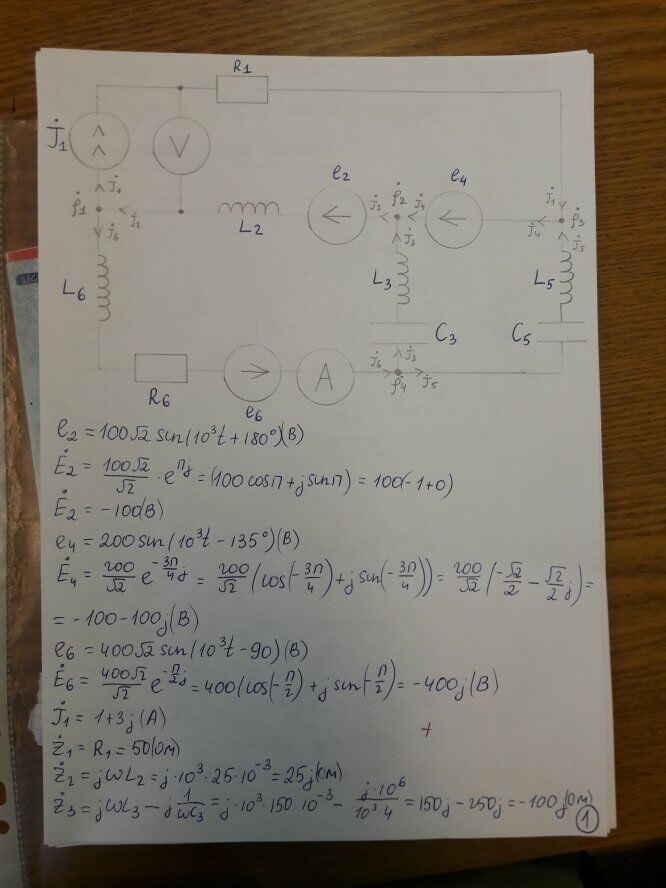 R1
J̇1
V
e2
e4
φ̇1
J̇1
J̇2
J̇6
φ̇2
J̇2
J̇4
J̇3
J̇1
φ̇3
J̇4
J̇5
L2
L6
L3
L5
C3
C5
R6
e6
A
J̇6
J̇3
φ̇4
J̇5
LEG
e2 = 100√2 sin(10³t + 180°)(В)
Ė2 = 100√2/√2 · e^πj = (100 cosπ + j sinπ) = 100(-1+0)
Ė2 = -100(В)
e4 = 200 sin(10³t - 135°)(В)
Ė4 = 200/√2 e^-3π/4 j = 200/√2 (cos(-3π/4) + j sin(-3π/4)) = 200/√2 (-√2/2 - √2/2 j) =
= -100-100j(В)
e6 = 400√2 sin(10³t - 90)(В)
Ė6 = 400√2/√2 e^-π/2 j = 400(cos(-π/2) + j sin(-π/2) = -400j(В)
J̇1 = 1+3j(А)
Ż1 = R1 = 50(Ом)
Ż2 = jωL2 = j·10³·25·10⁻³ = 25j(Ом)
Ż3 = jωL3 - j 1/ωC3 = j·10³·150·10⁻³ - j·10⁶/10³·4 = 150j - 250j = -100j(Ом)
1